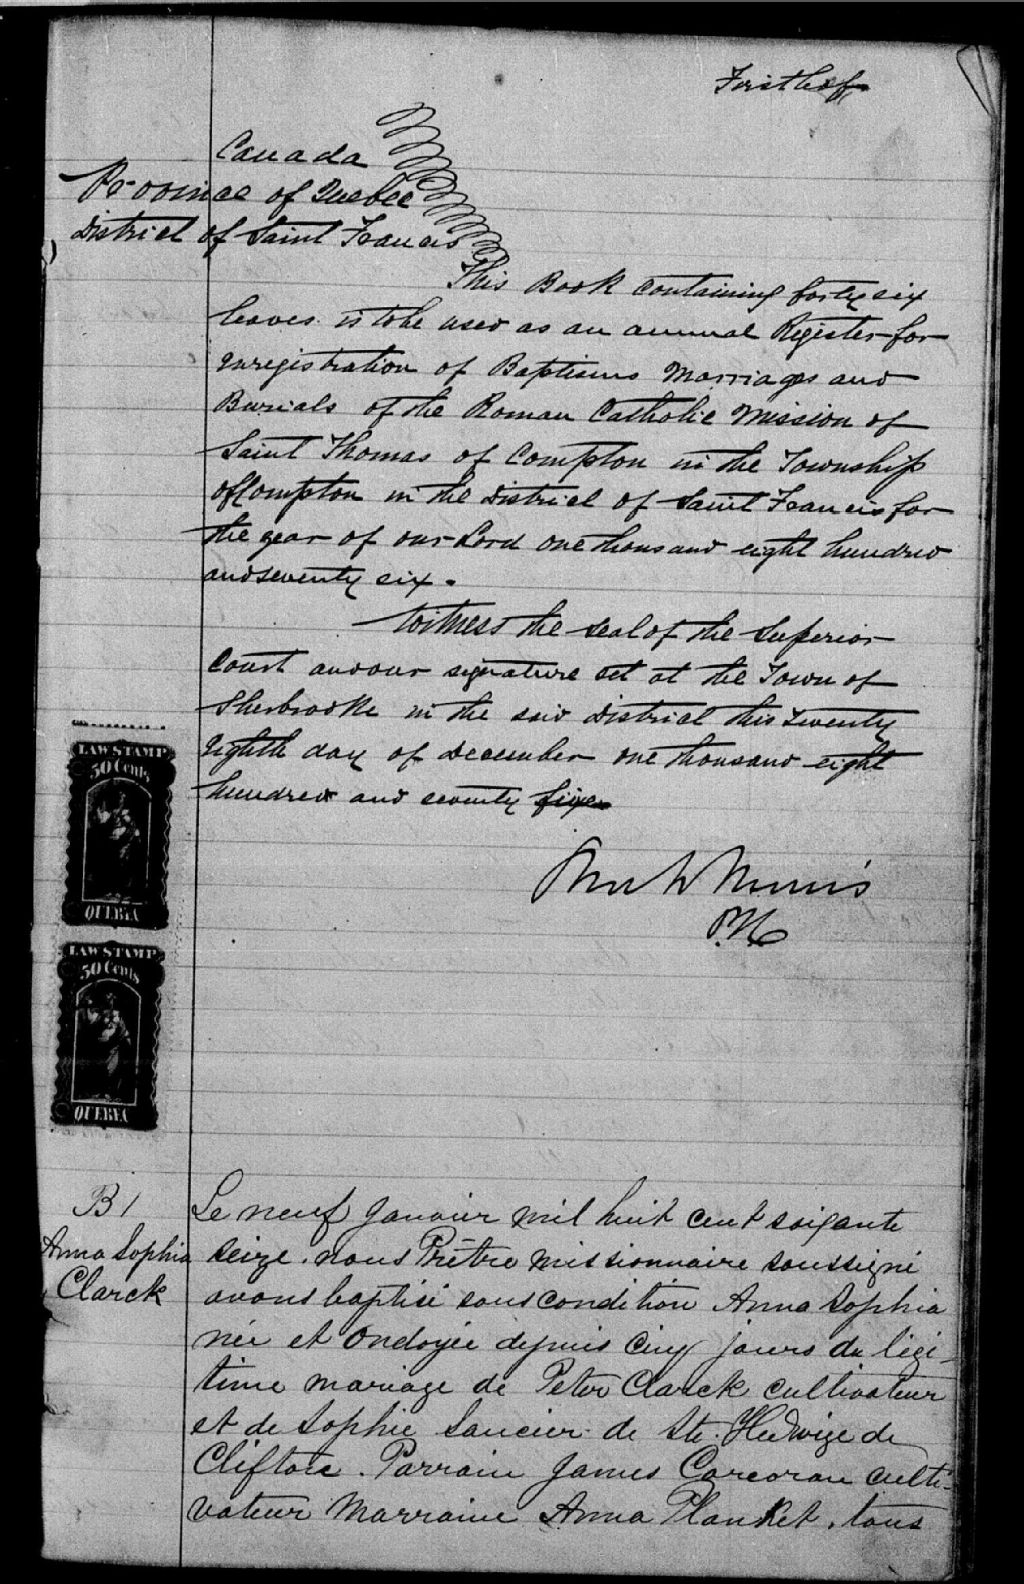 First leaf
Canada
Province of Quebec
District of Saint Francis
This Book containing forty six
leaves is to be used as an annual Register for
Enregistration of Baptisms Marriages and
Burials of the Roman Catholic Mission of
Saint Thomas of Compton in the Township
of Compton in the District of Saint Francis for
the year of our Lord one thousand eight hundred
and seventy six.
Witness the seal of the Superior
Court and our signature set at the Town of
Sherbrooke in the said District this twenty
eighth day of December one thousand eight
hundred and seventy five
LAW STAMP
50 Cents
QUEBEC
LAW STAMP
50 Cents
QUEBEC
B 1
Anna Sophia
Clarck
Le neuf Janvier mil huit cent soixante
seize nous Prêtre missionnaire soussigné
avons baptisé sous condition Anna Sophia
née et ondoyée depuis cinq jours du légi-
time mariage de Peter Clarck cultivateur
et de Sophie Saucier de Ste. Hedwige de
Clifton. Parrain James Corcoran culti-
vateur Marraine Anna Plunket, tous